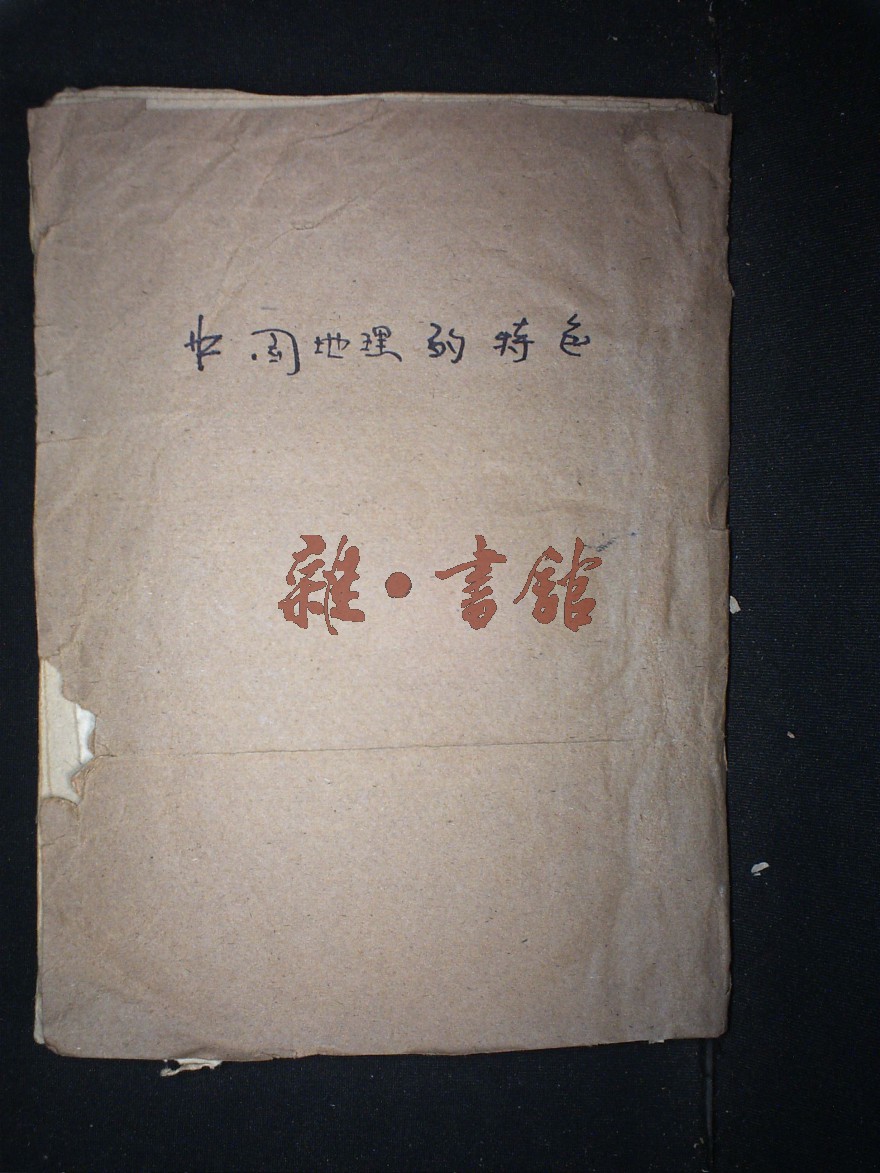 中国地理的特色
雜·書館